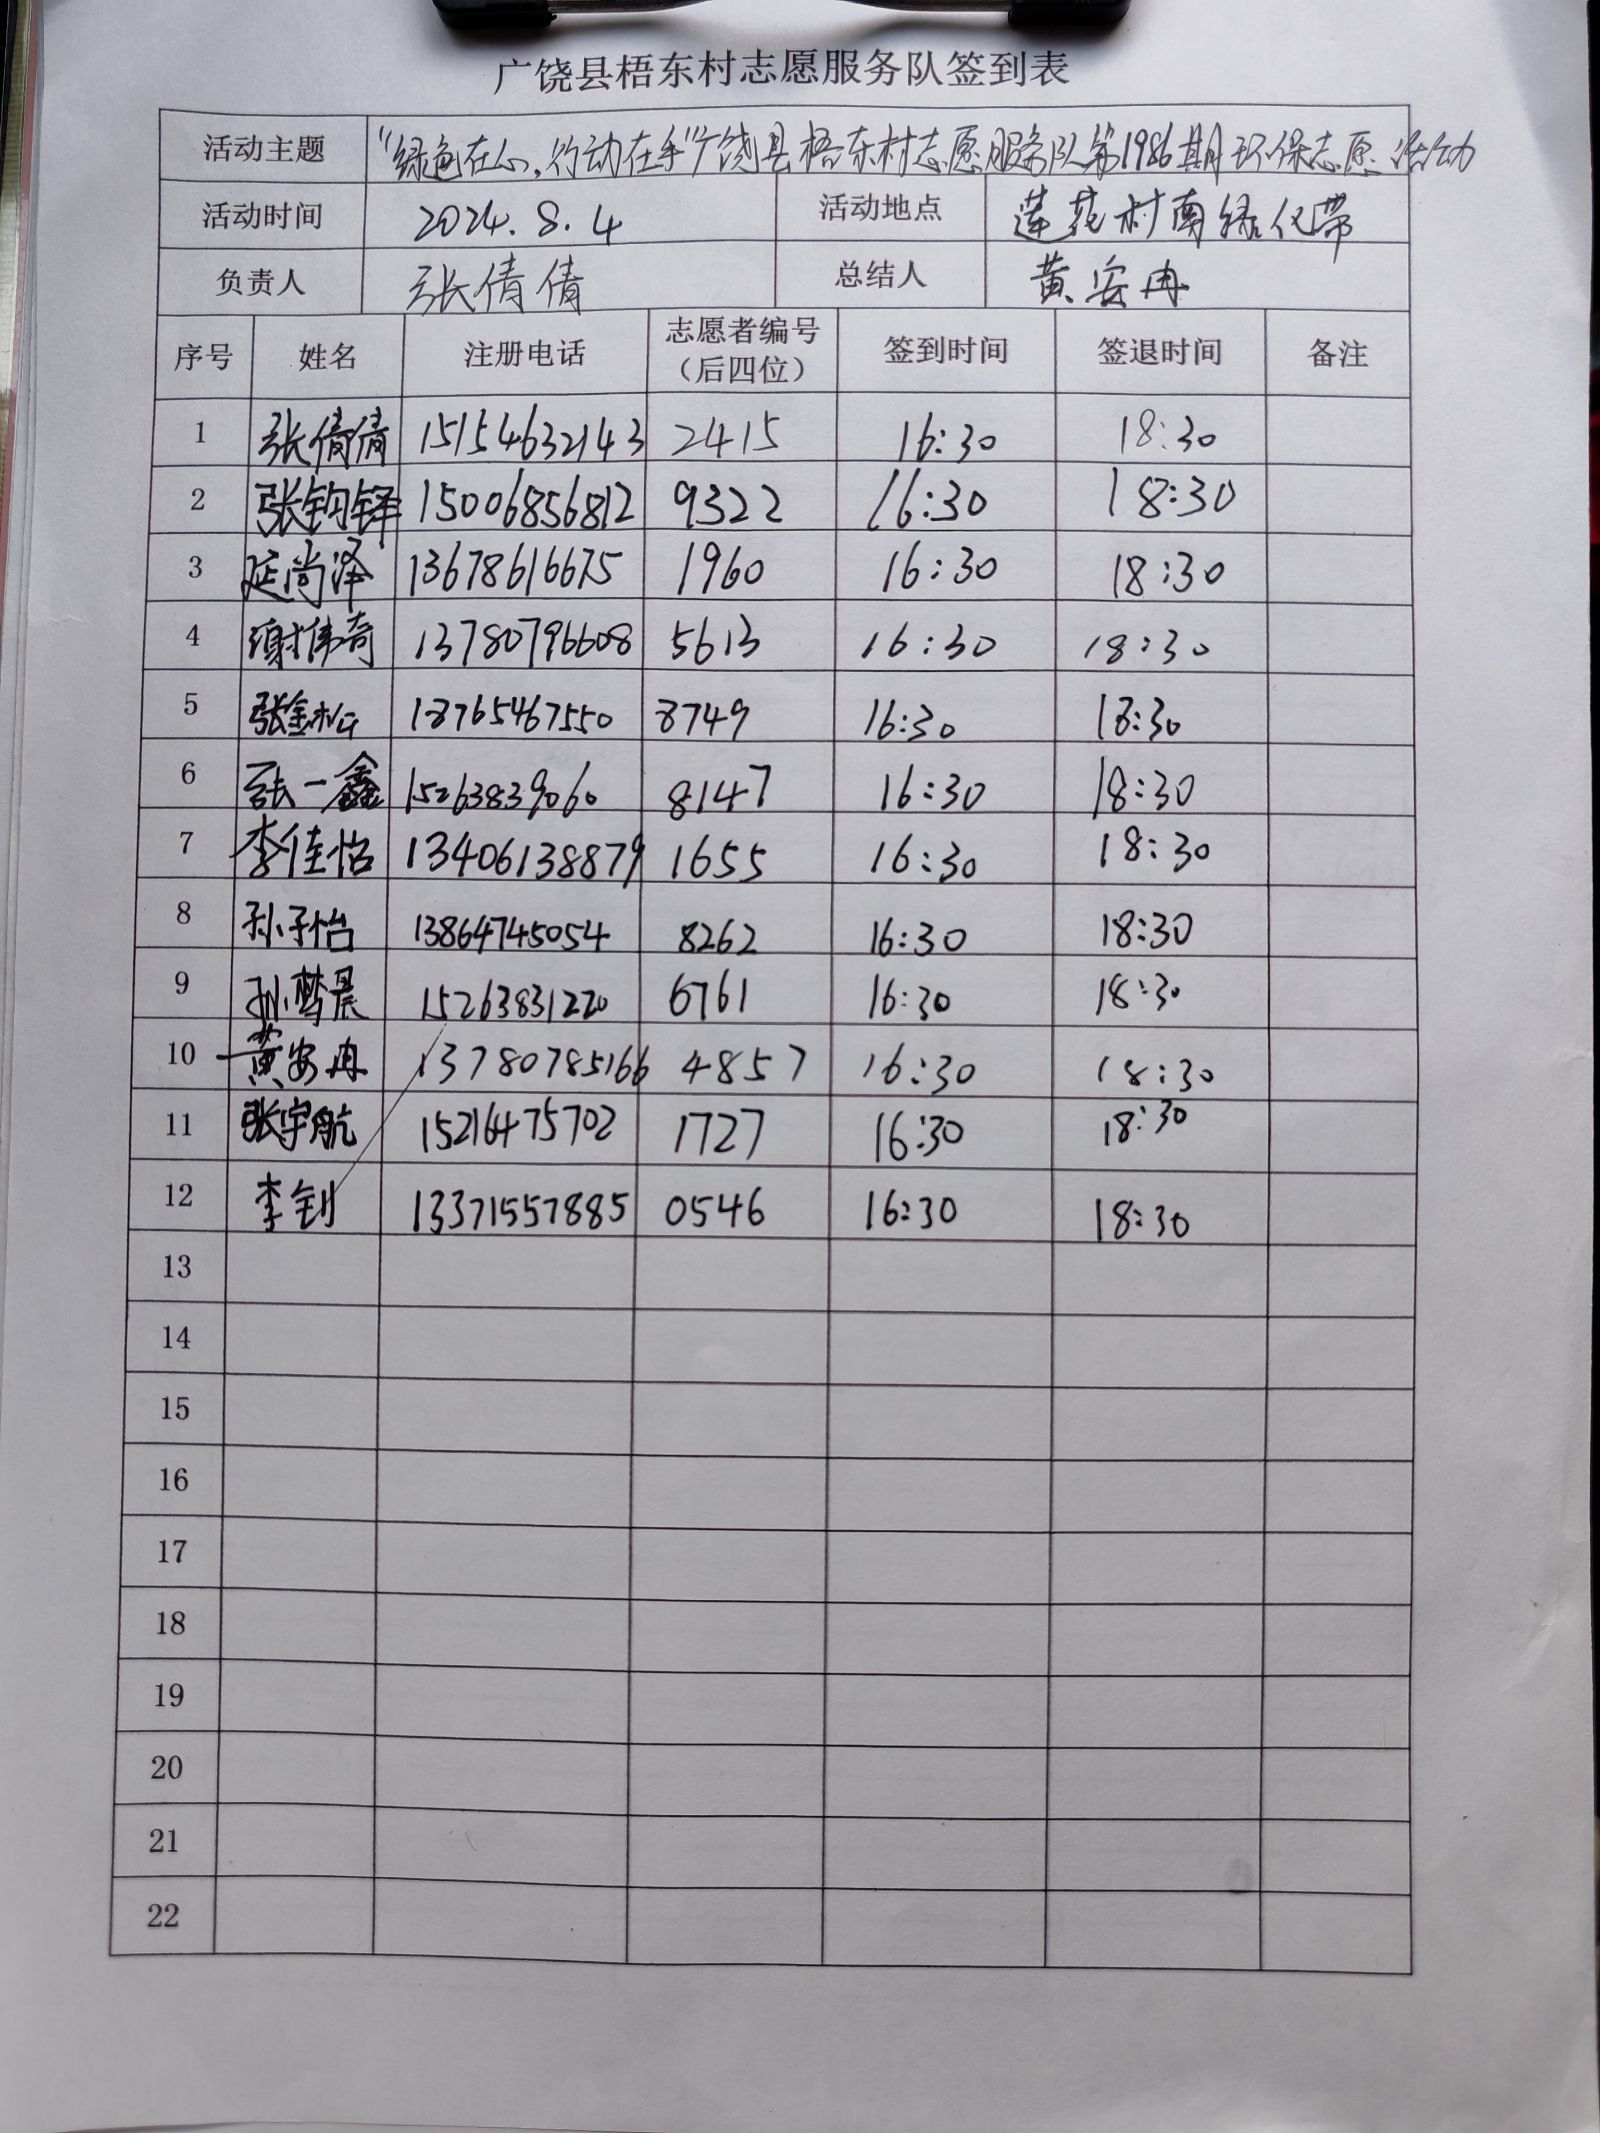 广饶县梧东村志愿服务队签到表
活动主题 “绿色在心，行动在手”广饶县梧东村志愿服务队第1986期环保志愿活动
活动时间 2024.8.4 活动地点 莲花村南绿化带
负责人 张倩倩 总结人 黄安冉
序号 姓名 注册电话 志愿者编号（后四位） 签到时间 签退时间 备注
1 张倩倩 15154632143 2415 16:30 18:30
2 张钧铎 15006856812 9322 16:30 18:30
3 延尚泽 13678616675 1960 16:30 18:30
4 谢伟奇 13780796608 5613 16:30 18:30
5 张金松 18765467550 8749 16:30 18:30
6 张一鑫 15263839060 8147 16:30 18:30
7 李佳怡 13406138879 1655 16:30 18:30
8 孙子怡 13864745054 8262 16:30 18:30
9 孙梦晨 15263831220 6761 16:30 18:30
10 黄安冉 13780785166 4857 16:30 18:30
11 张宇航 15216475702 1727 16:30 18:30
12 李钊 13371557885 0546 16:30 18:30
13
14
15
16
17
18
19
20
21
22